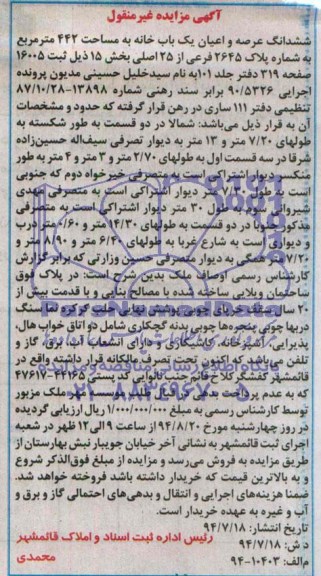 آگهی مزایده غیرمنقول
ششدانگ عرصه و اعیان یک باب خانه به مساحت ۴۴۲ مترمربع
به شماره پلاک ۲۶۴۵ فرعی از ۲۵ اصلی بخش ۱۵ ذیل ثبت ۱۶۰۰۵
صفحه ۳۱۹ دفتر جلد ۱۰۱ به نام سیدخلیل حسینی مدیون پرونده
اجرایی ۹۰/۵۳۲۶ برابر سند رهنی شماره ۱۳۸۹۸-۸۷/۱۰/۲۸
تنظیمی دفتر ۱۱۱ ساری در رهن قرار گرفته که حدود و مشخصات
آن به قرار ذیل می‌باشد: شمالا در دو قسمت به طور شکسته به
طولهای ۷/۲۰ متر و ۱۳ متر به دیوار تصرفی سیف‌اله حسین‌زاده
شرقا در سه قسمت اول به طولهای ۲/۷۰ متر و ۳ متر و ۴ متر به طور
منکسر دیوار اشتراکی است به متصرفی خیرخواه دوم که جنوبی
است به طول ۷/۳۰ متر دیوار اشتراکی است به متصرفی مهدی
شیروانی سوم به طول ۳۰ متر دیوار اشتراکی است به متصرفی
مذکور جنوبا در دو قسمت به طولهای ۱۴/۳۰ متر و ۰/۶۰ متر درب
و دیواری است به شارع غربا به طولهای ۶/۳۰ متر و ۸/۹۰ متر و
۷/۲۰ متر همگی به دیوار متصرفی حسین وزارتی که برابر گزارش
کارشناس رسمی اوصاف ملک بدین شرح است: در پلاک فوق
ساختمان ویلایی ساخته شده با مصالح بنایی و با قدمت بیش از
۲۰ سال سقف خرپای چوبی پوشش نهایی حلب کرکره نما سنگ
دربها چوبی پنجره‌ها چوبی بدنه گچکاری شامل دو اتاق خواب هال،
پذیرایی، آشپزخانه کاشیکاری و دارای انشعاب آب برق، گاز و
تلفن می‌باشد که اکنون تحت تصرف مالکانه قرار داشته واقع در
قائمشهر کفشگرکلا خ قائم جنب نانوایی کد پستی ۴۴۱۶۵-۴۷۶۱۷
که به عدم پرداخت بدهی در قبال طلب ملک مزبور
توسط کارشناس رسمی به مبلغ ۱/۰۰۰/۰۰۰/۰۰۰ ریال ارزیابی گردیده
در روز چهارشنبه مورخ ۹۴/۸/۲۰ از ساعت ۹ الی ۱۲ ظهر در شعبه
اجرای ثبت قائمشهر به نشانی آخر خیابان جویبار نبش بهارستان از
طریق مزایده به فروش می‌رسد و مزایده از مبلغ فوق‌الذکر شروع
و به بالاترین قیمت که خریدار داشته باشد فروخته خواهد شد.
ضمنا هزینه‌های اجرایی و انتقال و بدهی‌های احتمالی گاز و برق و
آب و غیره به عهده خریدار است.
تاریخ انتشار: ۹۴/۷/۱۸
د ش: ۹۴/۷/۱۸ رئیس اداره ثبت اسناد و املاک قائمشهر
م‌الف: ۱۰۴۰۳-۹۴ محمدی